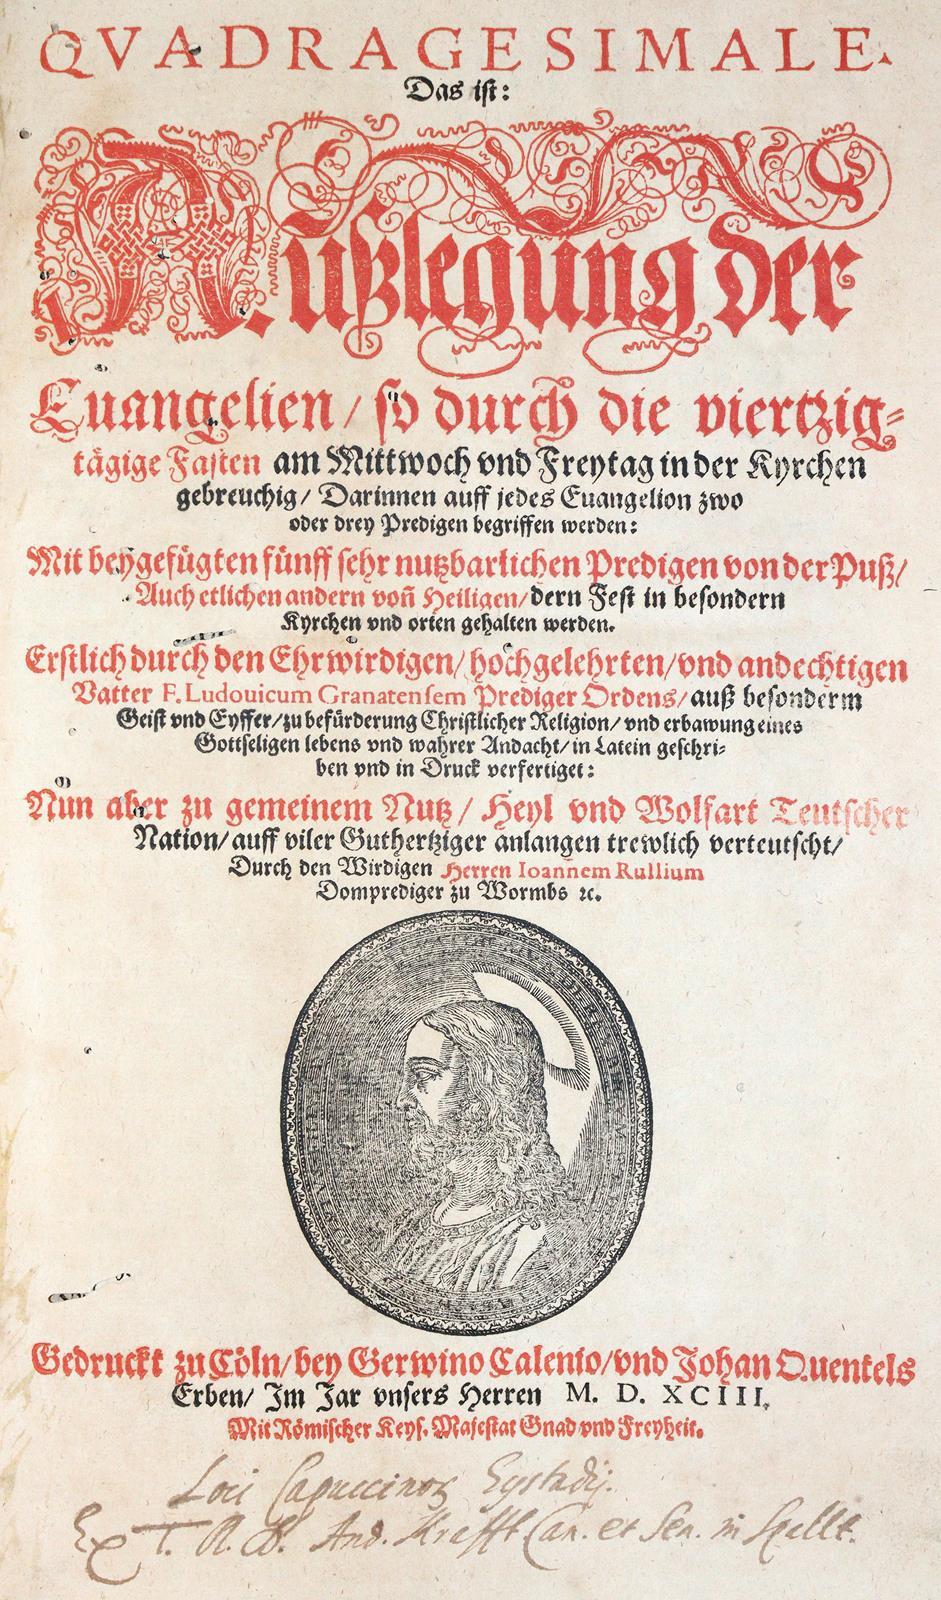 QVADRAGESIMALE.
Das ist:
Außlegung der
Euangelien / so durch die viertzig-
tägige Fasten am Mittwoch vnd Freytag in der Kyrchen
gebreuchig / Darinnen auff jedes Euangelion zwo
oder drey Predigen begriffen werden:
Mit beygefügten fünff sehr nutzbarlichen Predigen von der Puß /
Auch etlichen andern voñ Heiligen / dern Fest in besondern
Kyrchen vnd orten gehalten werden.
Erstlich durch den Ehrwirdigen / hochgelehrten / vnd andechtigen
Vatter F. Ludouicum Granatensem Prediger Ordens / auß besonderm
Geist vnd Eyffer / zu befürderung Christlicher Religion / vnd erbawung eines
Gottseligen lebens vnd wahrer Andacht / in Latein geschri-
ben vnd in Druck verfertiget:
Nun aber zu gemeinem Nutz / Heyl vnd Wolfart Teutscher
Nation / auff viler Guthertziger anlangen trewlich verteutscht /
Durch den Wirdigen Herren Ioannem Rullium
Domprediger zu Wormbs ꝛc.
Gedruckt zu Cöln / bey Gerwino Calenio / vnd Johan Quentels
Erben / Im Jar vnsers Herren M. D. XCIII.
Mit Römischer Keys. Majestat Gnad vnd Freyheit.
Loci Capuccinor Eystadij.
Ex T. And. Krafft Can. et Sen. in Spallt.